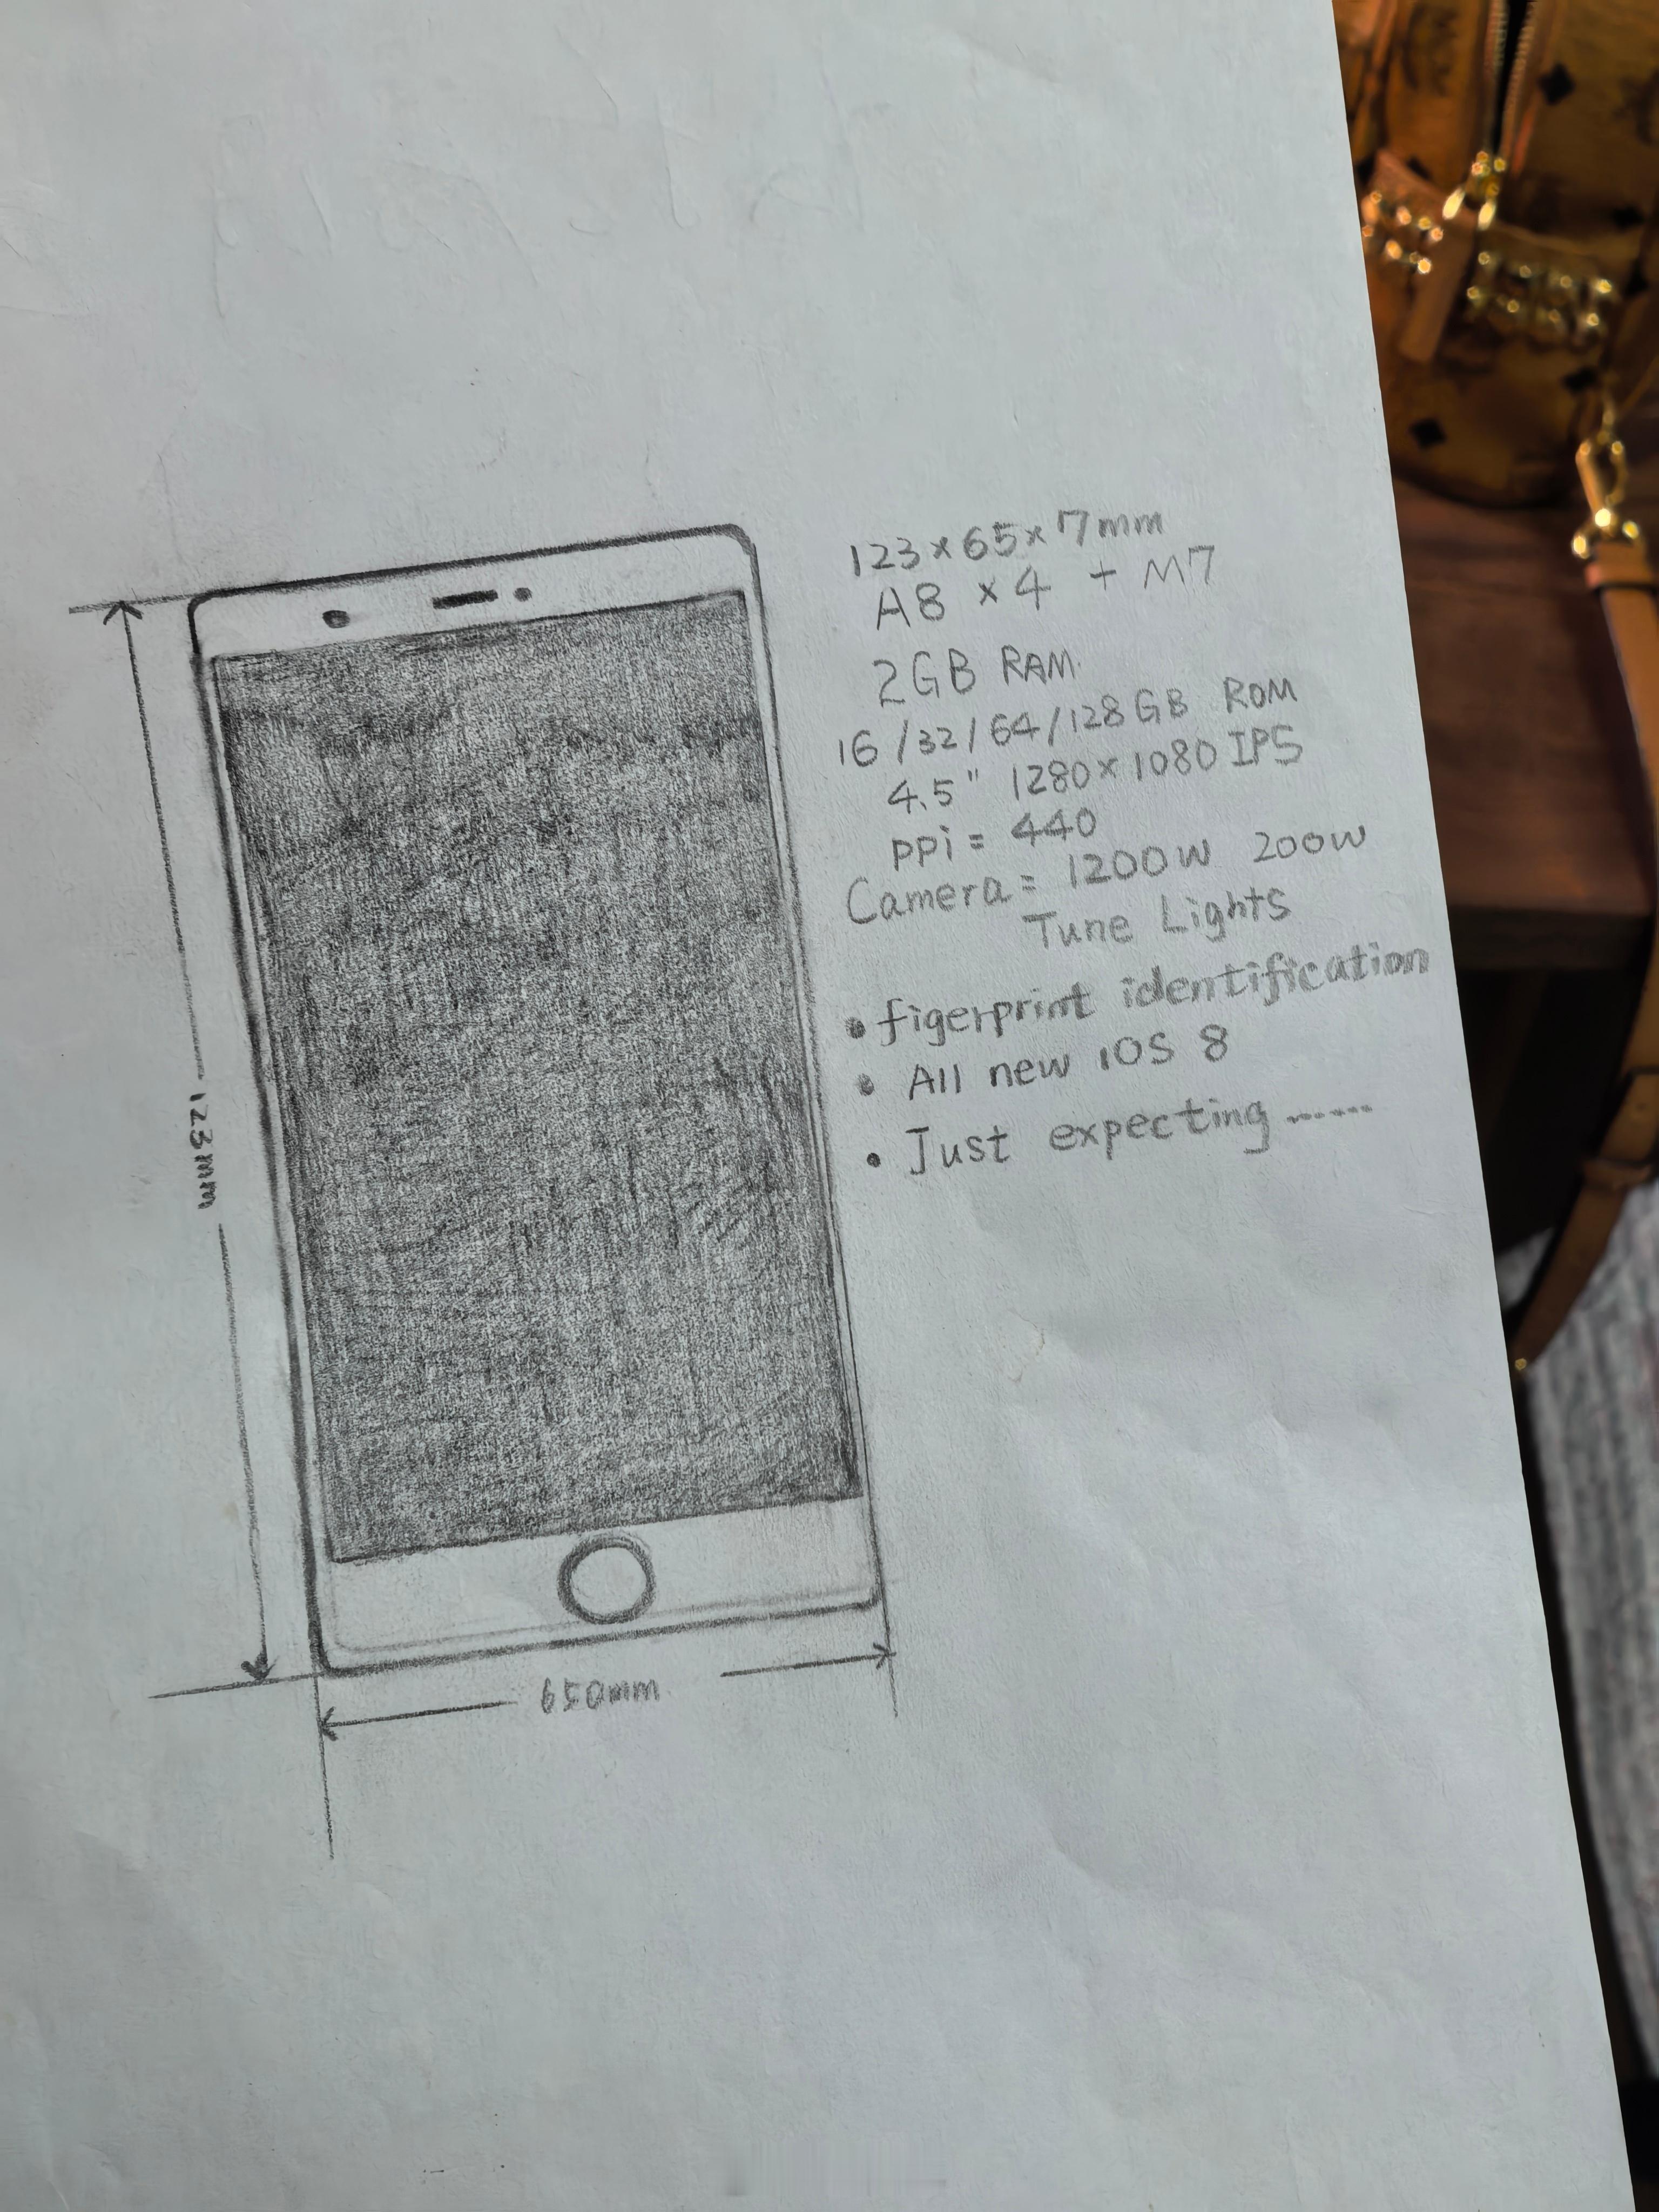 123×65×7mm
A8 ×4 + M7
2GB RAM.
16/32/64/128GB ROM
4.5" 1280×1080 IPS
ppi= 440
Camera= 1200W 200W
Tune Lights
• figerprint identification
• All new iOS 8
• Just expecting ------
123mm
650mm